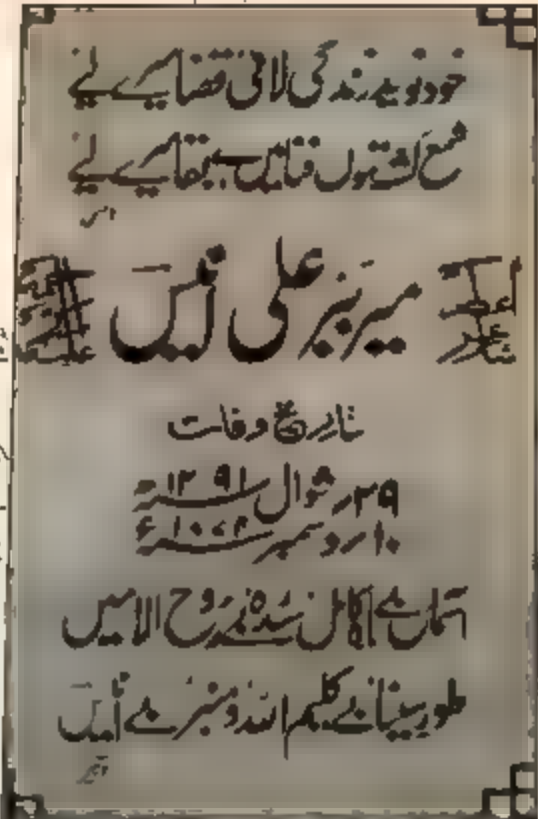 خود نوید زندگی لائی قضا میرے لیے
شمع کشتہ ہوں فنا میں ہے بقا میرے لیے
انیس
میر ببر علی انیس
تاریخ وفات
۲۹ر شوال ۱۲۹۱ سنہ ھ
۱۰ر دسمبر ۱۸۷۴ سنہ ء
آسماں بے ماہ کامل سدرہ بے روح الامیں
طور سینا بے کلیم اللہ و منبر بے انیس